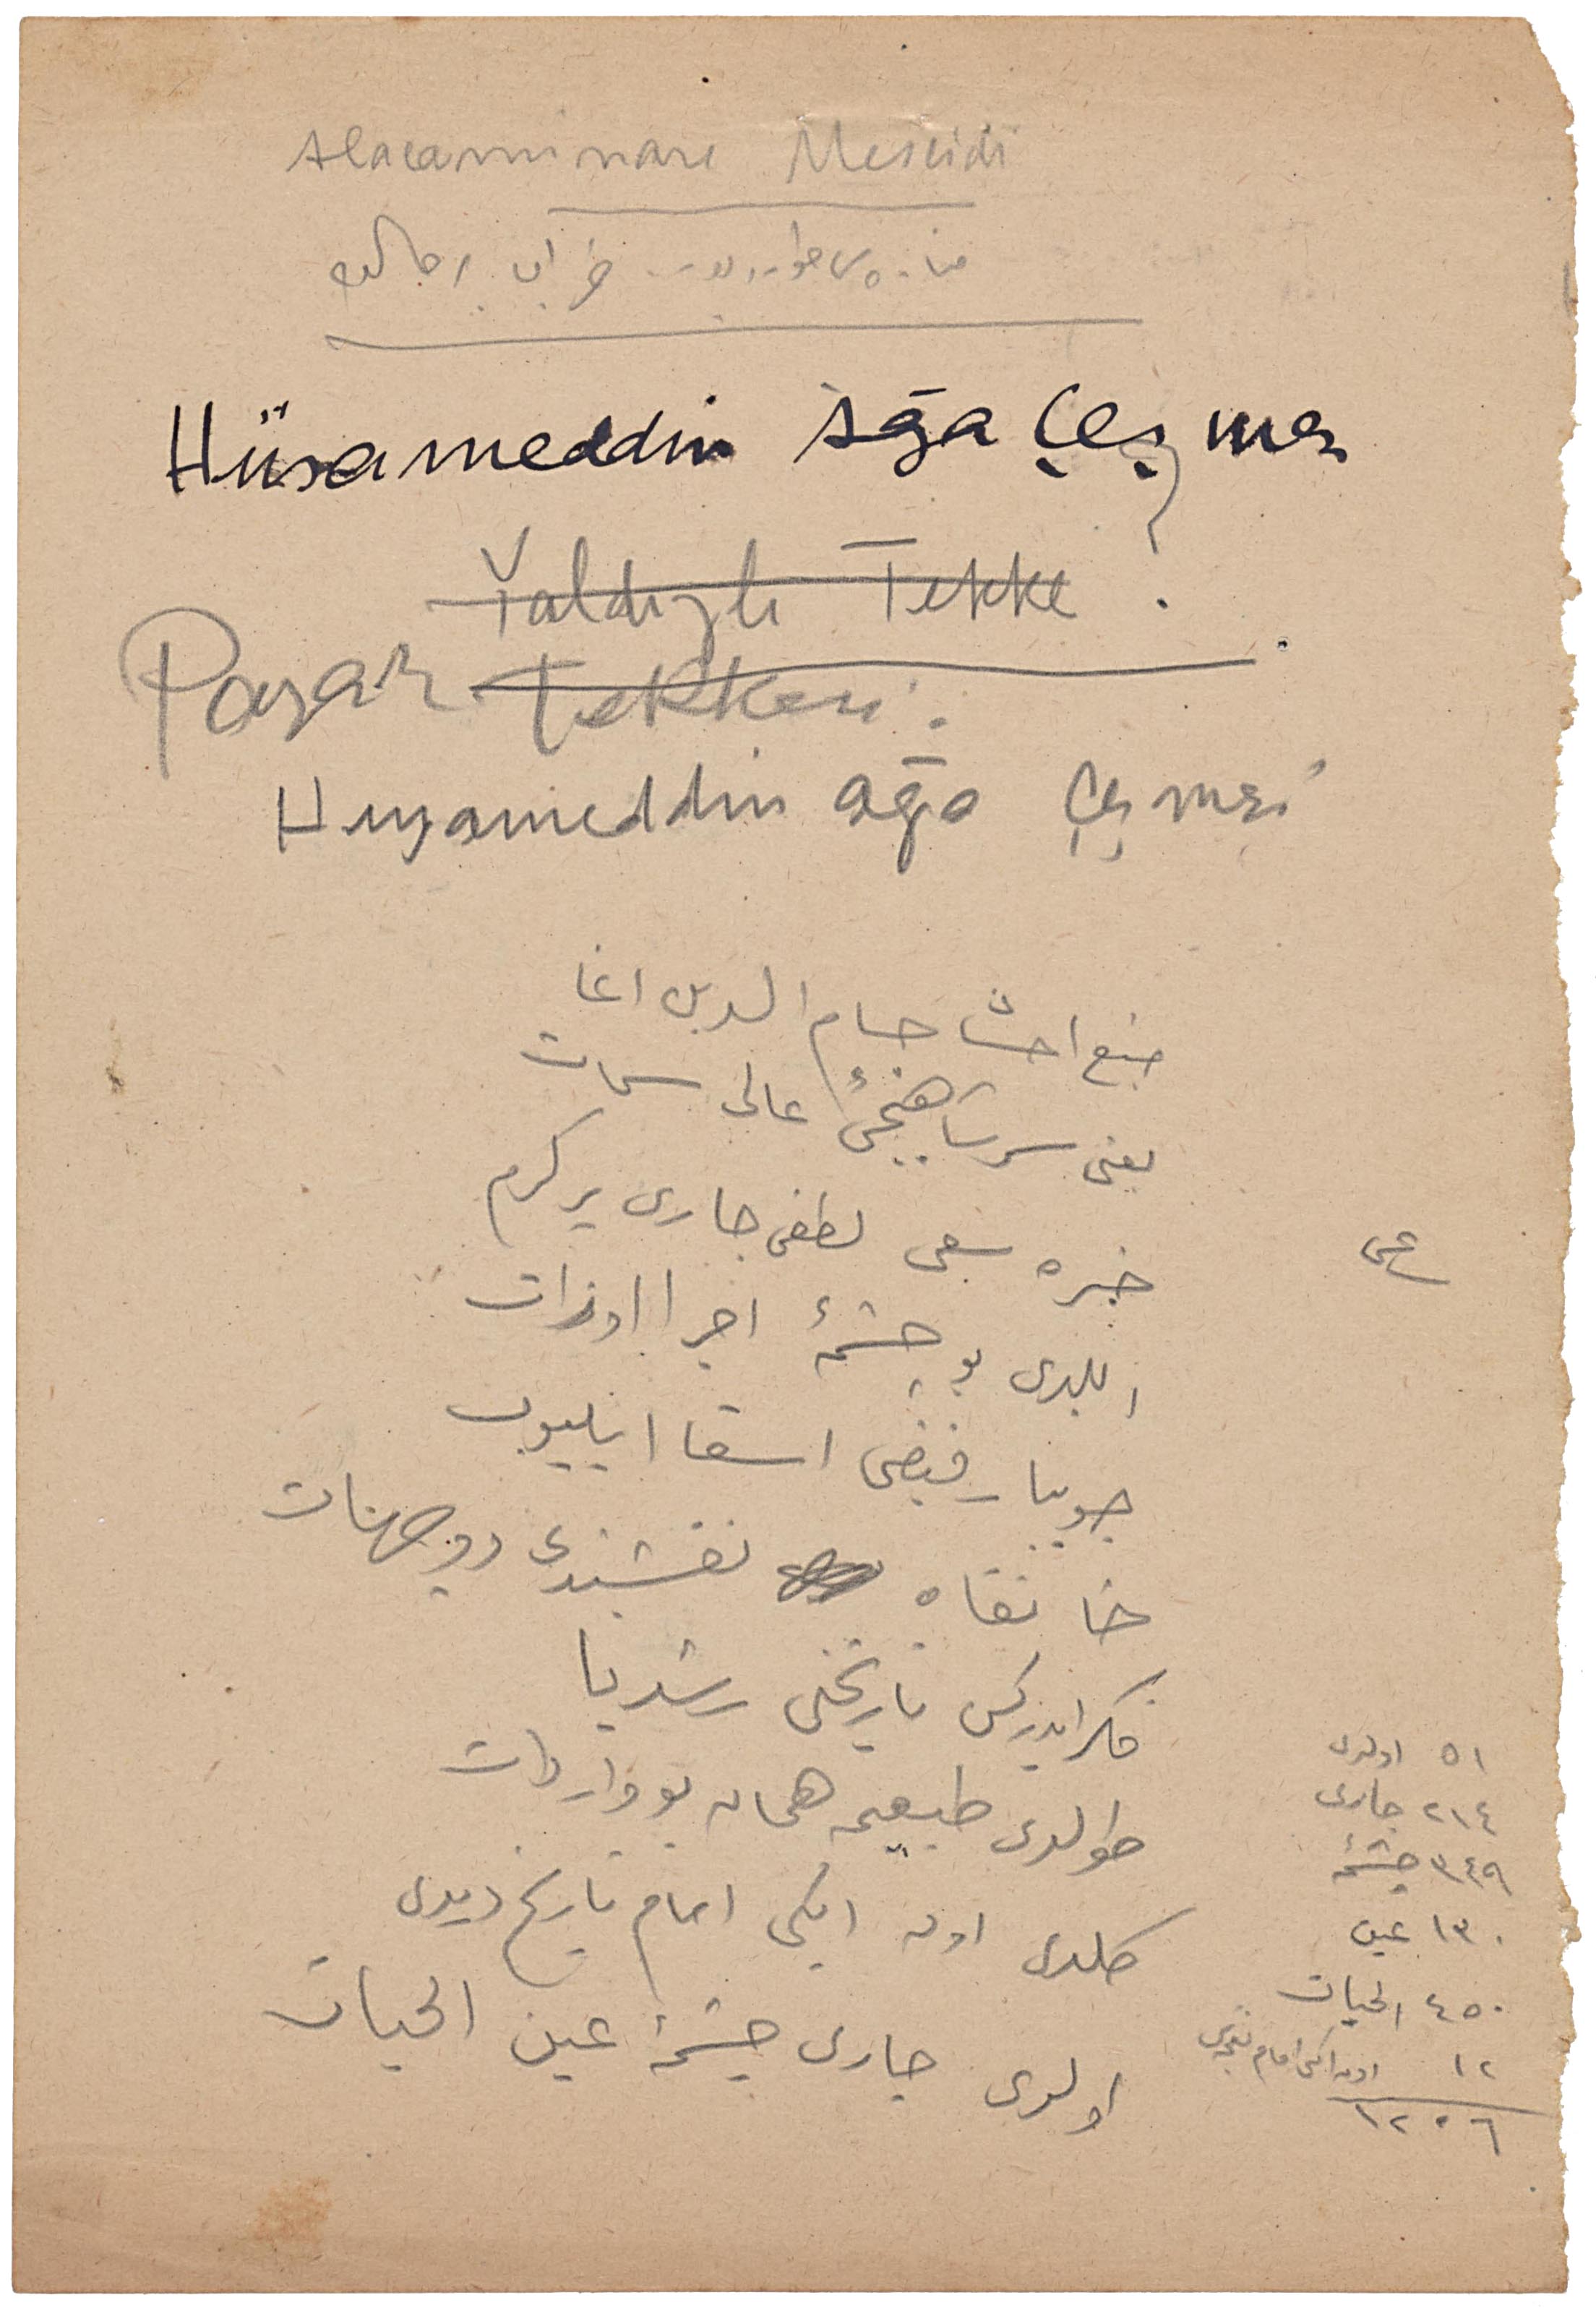 Alacaminare Mescidi
خراب
Hüsameddin Ağa Çeşmesi
Yaldızlı Tekke ?
Pazar Tekkesi.
Husameddin ağa Çeşmesi
منبع احسان حسام الدین اغا
یعنی سرشاهنجی عالی سمات
خیره سعی لطفی جاری پر کرم
سعی
ایلدی بو چشمهٔ اجرا او ذات
جویبار فیضی اسقا ایلیوب
خانقاه نقشبندی دو جهات
فکر ایدرکن تاریخنی رشدیا
طولدی طبعمه همان بو واردات
کلدی اون ایکی امام تاریخ دیدی
اولدی جاری چشمهٔ عین الحیات
٥١ اولدی
٢١٤ جاری
٣٤٩ چشمهٔ
١٣٠ عین
٤٥٠ الحیات
١٢ اون ایکی امام
١٢٠٦